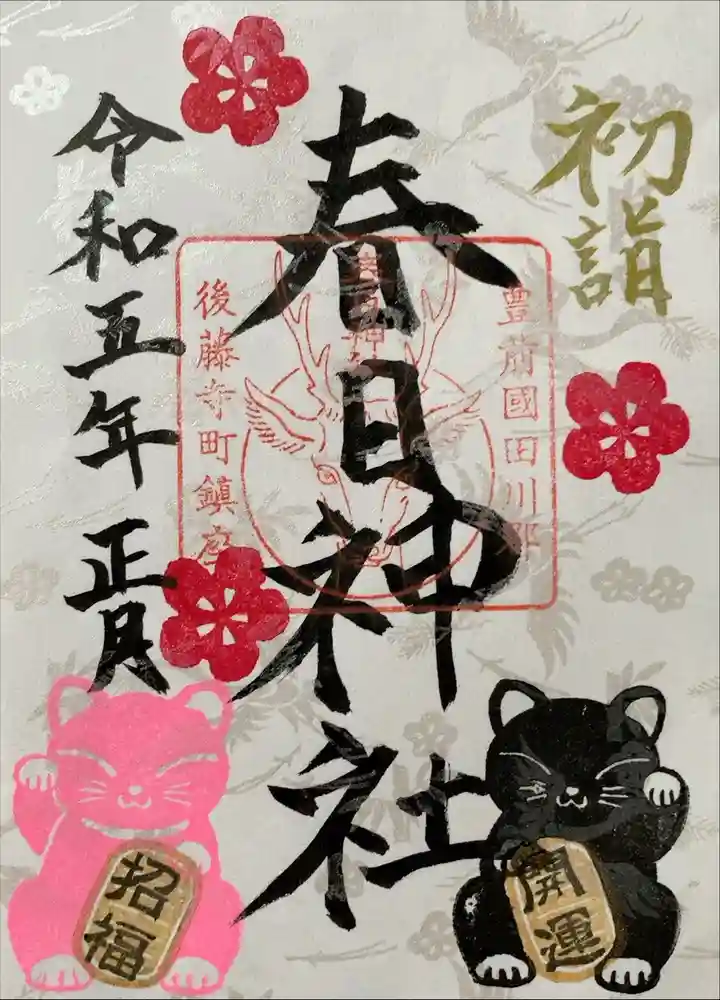 初詣
春日神社
令和五年正月
豊前國田川郡
春日神社
後藤寺町鎮座
招福
開運